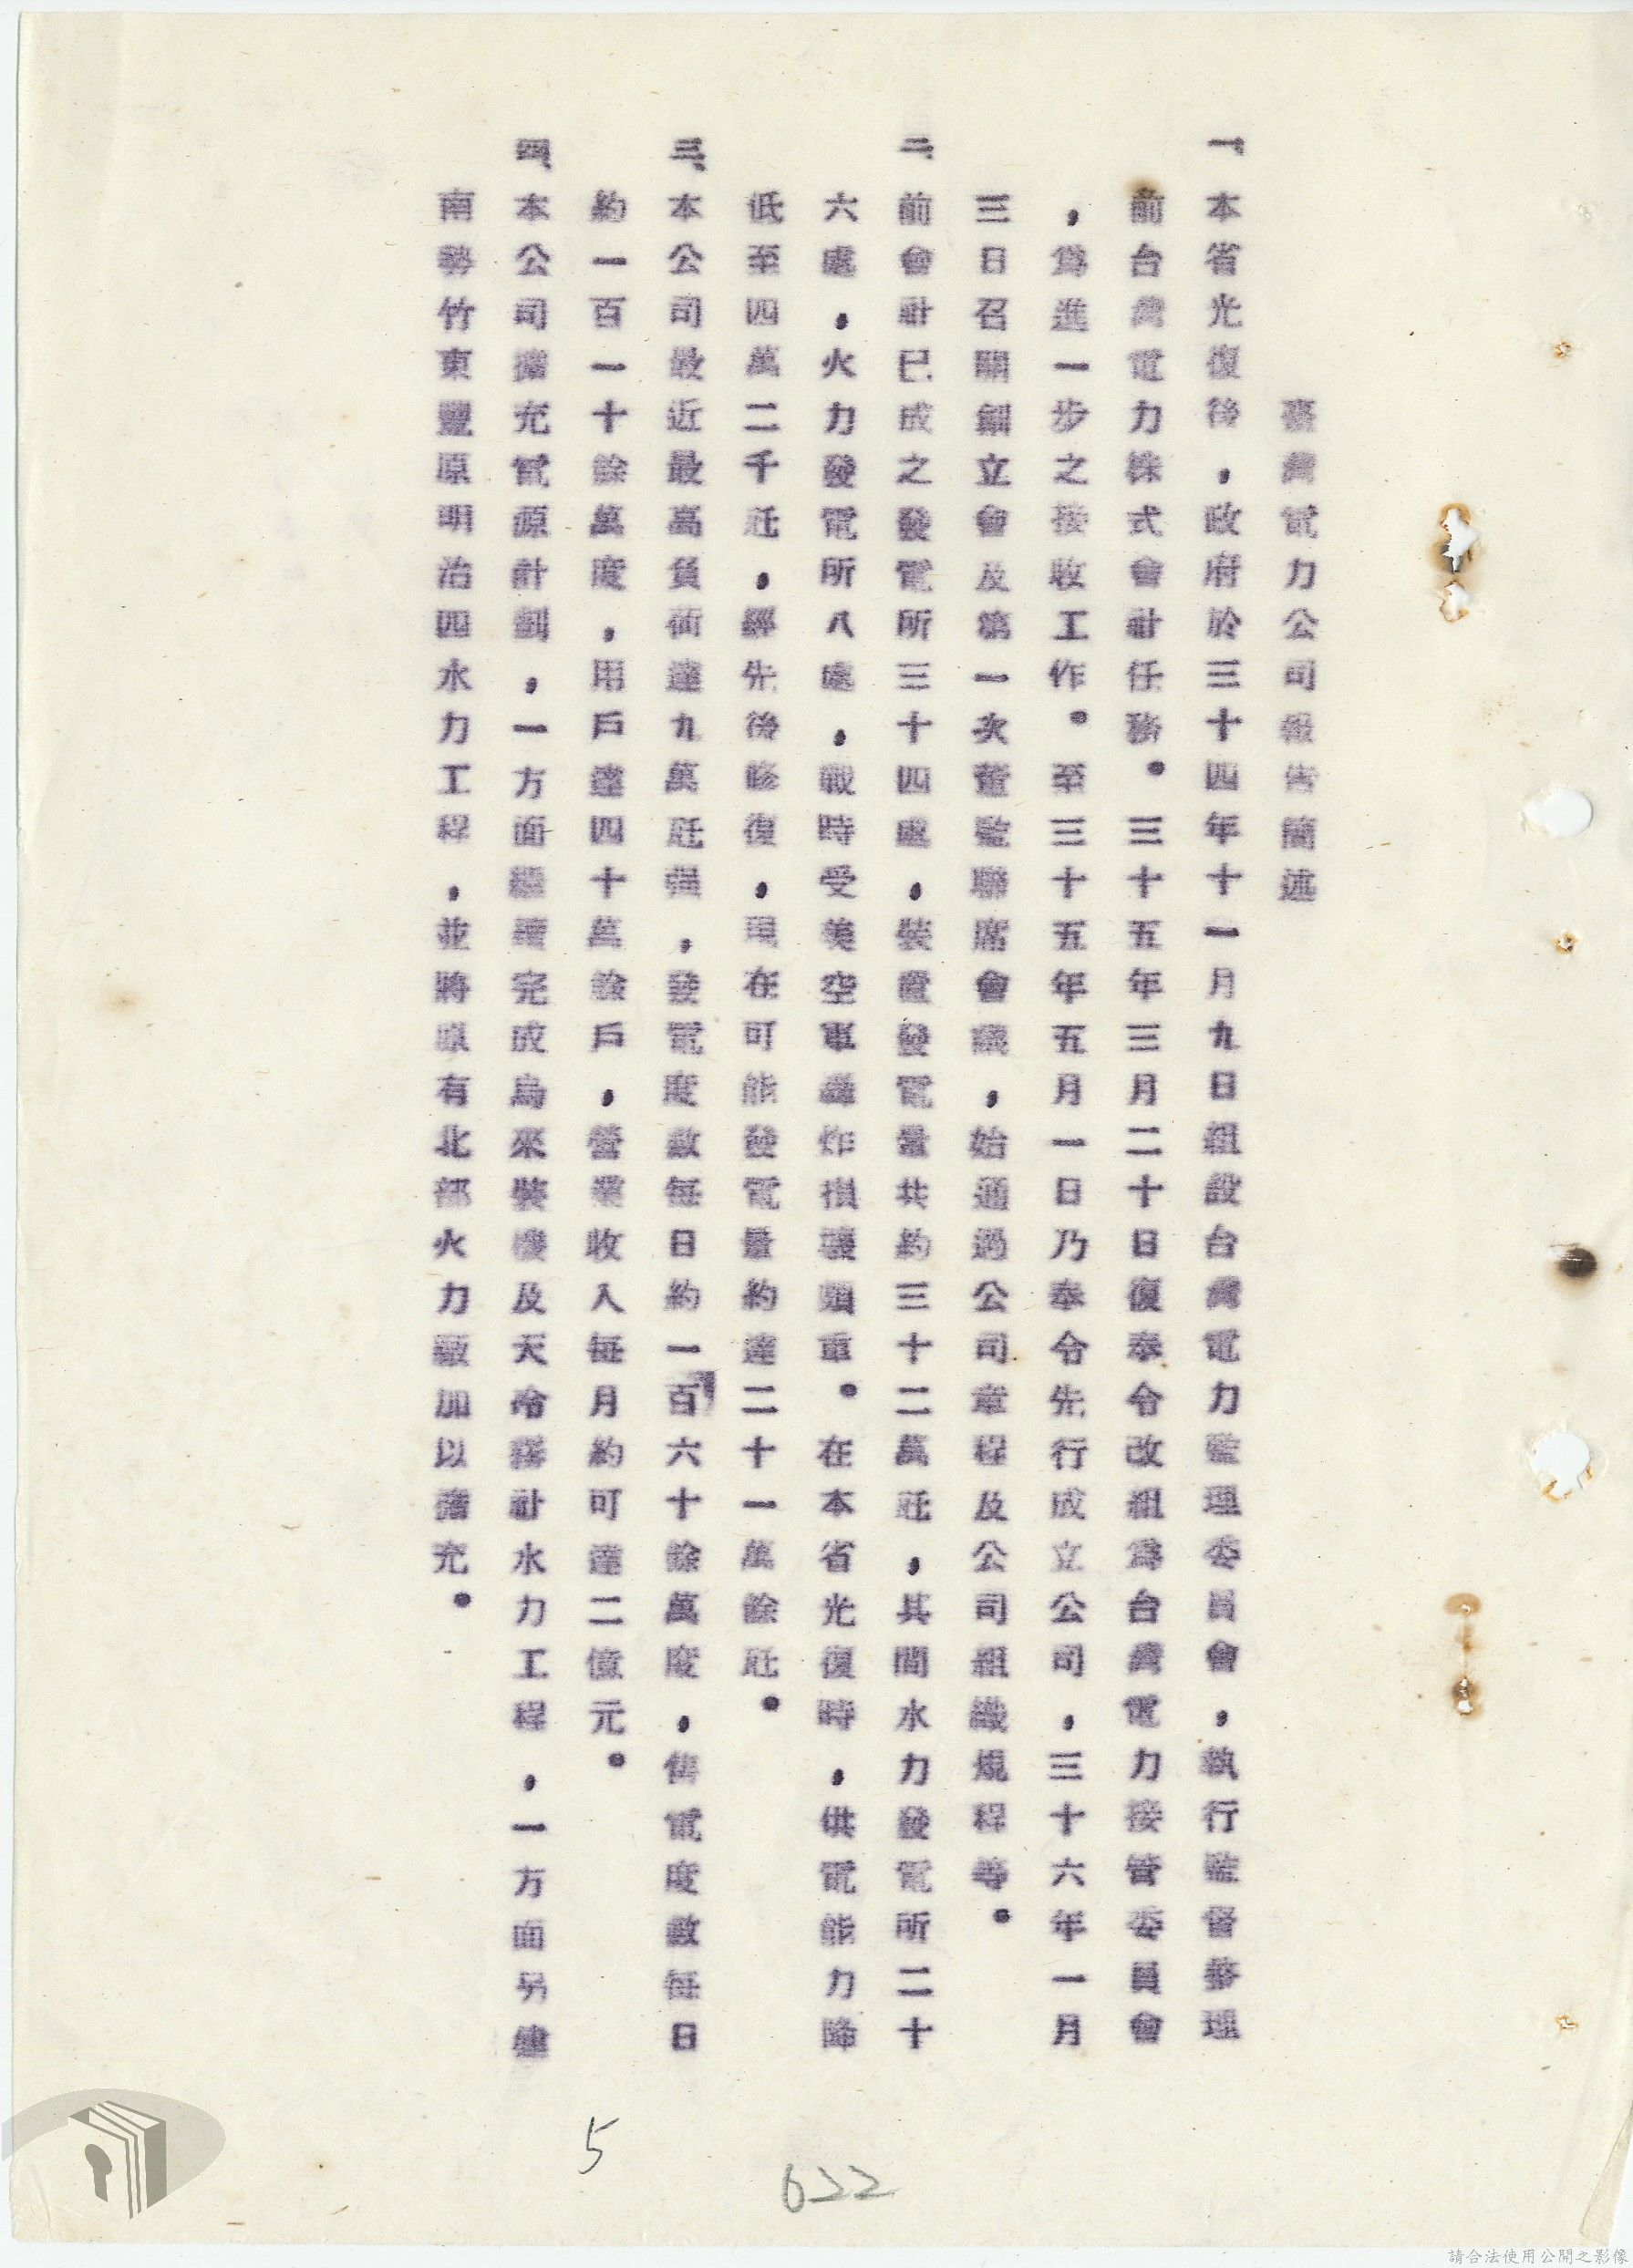 臺灣電力公司報告簡述
一、本省光復後，政府於三十四年十一月九日組設台灣電力監理委員會，執行監督整理
前台灣電力株式會社任務。三十五年三月二十日復奉令改組為台灣電力接管委員會
，為進一步之接收工作。至三十五年五月一日乃奉令先行成立公司，三十六年一月
三日召開創立會及第一次董監聯席會議，始通過公司章程及公司組織規程等。
二、前會社已成之發電所三十四處，裝置發電量共約三十二萬瓩，其間水力發電所二十
六處，火力發電所八處，戰時受美空軍轟炸損壞頗重。在本省光復時，供電能力降
低至四萬二千瓩，經先後修復，現在可能發電量約達二十一萬餘瓩。
三、本公司最近最高負荷達九萬瓩強，發電度數每日約一百六十餘萬度，售電度數每日
約一百一十餘萬度，用戶達四十萬餘戶，營業收入每月約可達二億元。
四、本公司擴充電源計劃，一方面繼續完成烏來裝機及天冷霧社水力工程，一方面另建
南勢竹東豐原明治四水力工程，並將原有北部火力廠加以擴充。
5
622
請合法使用公開之影像